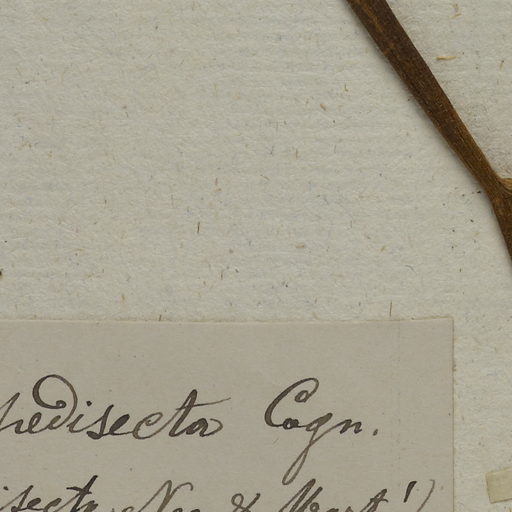 pedisecta Cogn.
isecta Nee & Mart!)